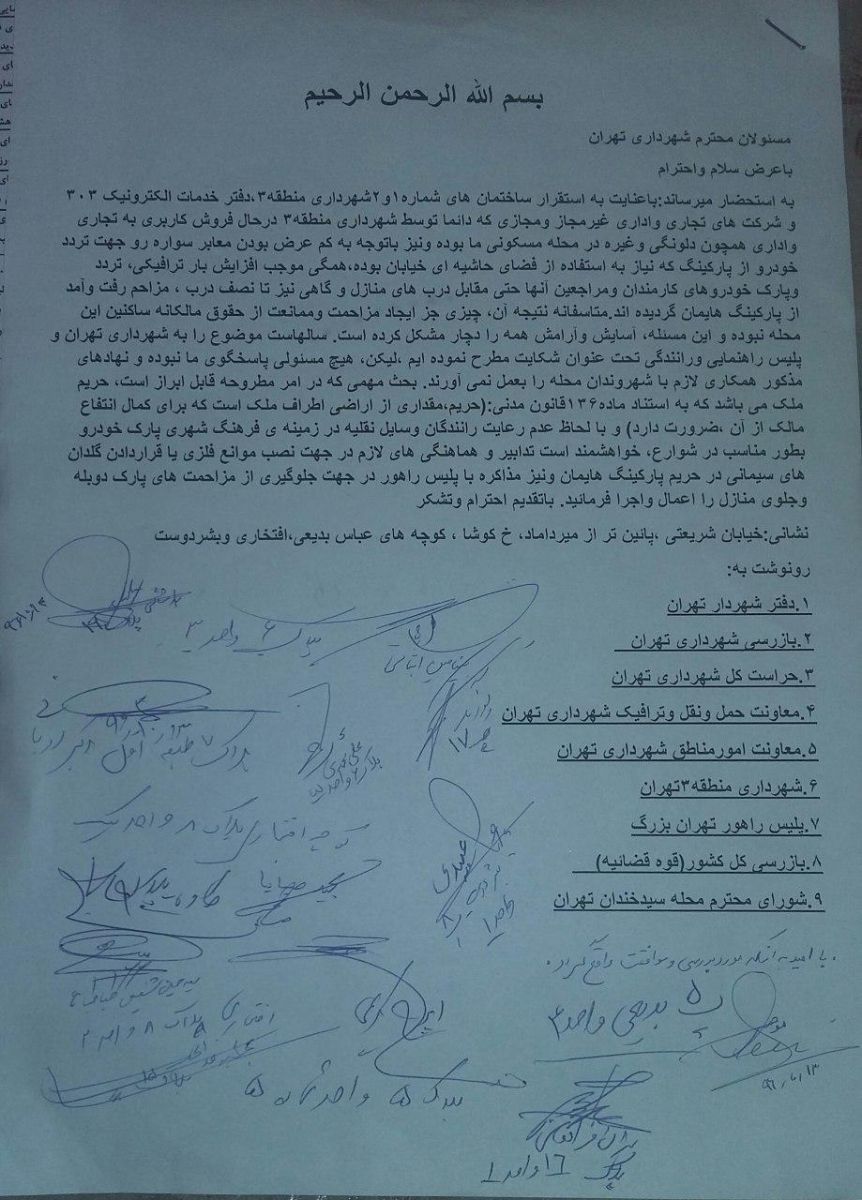 بسم الله الرحمن الرحیم
مسئولان محترم شهرداری تهران
باعرض سلام واحترام
به استحضار میرساند:باعنایت به استقرار ساختمان های شماره۱و۲شهرداری منطقه۳،دفتر خدمات الکترونیک ۳۰۳
و شرکت های تجاری واداری غیرمجاز ومجازی که دائما توسط شهرداری منطقه۳ درحال فروش کاربری به تجاری
واداری همچون دلونگی وغیره در محله مسکونی ما بوده ونیز باتوجه به کم عرض بودن معابر سواره رو جهت تردد
خودرو از پارکینگ که نیاز به استفاده از فضای حاشیه ای خیابان بوده،همگی موجب افزایش بار ترافیکی، تردد
وپارک خودروهای کارمندان ومراجعین آنها حتی مقابل درب های منازل و گاهی نیز تا نصف درب ، مزاحم رفت وآمد
از پارکینگ هایمان گردیده اند.متاسفانه نتیجه آن، چیزی جز ایجاد مزاحمت وممانعت از حقوق مالکانه ساکنین این
محله نبوده و این مسئله، آسایش وآرامش همه را دچار مشکل کرده است. سالهاست موضوع را به شهرداری تهران و
پلیس راهنمایی ورانندگی تحت عنوان شکایت مطرح نموده ایم ،لیکن، هیچ مسئولی پاسخگوی ما نبوده و نهادهای
مذکور همکاری لازم با شهروندان محله را بعمل نمی آورند. بحث مهمی که در امر مطروحه قابل ابراز است، حریم
ملک می باشد که به استناد ماده۱۳۶قانون مدنی:(حریم،مقداری از اراضی اطراف ملک است که برای کمال انتفاع
مالک از آن ،ضرورت دارد) و با لحاظ عدم رعایت رانندگان وسایل نقلیه در زمینه ی فرهنگ شهری پارک خودرو
بطور مناسب در شوارع، خواهشمند است تدابیر و هماهنگی های لازم در جهت نصب موانع فلزی یا قراردادن گلدان
های سیمانی در حریم پارکینگ هایمان ونیز مذاکره با پلیس راهور در جهت جلوگیری از مزاحمت های پارک دوبله
وجلوی منازل را اعمال واجرا فرمائید. باتقدیم احترام وتشکر
نشانی:خیابان شریعتی ،پائین تر از میرداماد، خ کوشا ، کوچه های عباس بدیعی،افتخاری وبشردوست
رونوشت به:
۱.دفتر شهردار تهران
۲.بازرسی شهرداری تهران
۳.حراست کل شهرداری تهران
۴.معاونت حمل ونقل وترافیک شهرداری تهران
۵.معاونت امورمناطق شهرداری تهران
۶.شهرداری منطقه۳تهران
۷.پلیس راهور تهران بزرگ
۸.بازرسی کل کشور(قوه قضائیه)
۹.شورای محترم محله سیدخندان تهران
پلاک ۶ واحد ۳
پلاک ۷ طبقه اول
پلاک ۸ واحد یک
با امید به آنکه مورد بررسی و موافقت واقع گردد.
بدیعی واحد ۴
پلاک ۸ واحد ۲
پلاک ۵ واحد شماره ۵
پلاک ۱۶ واحد ۱